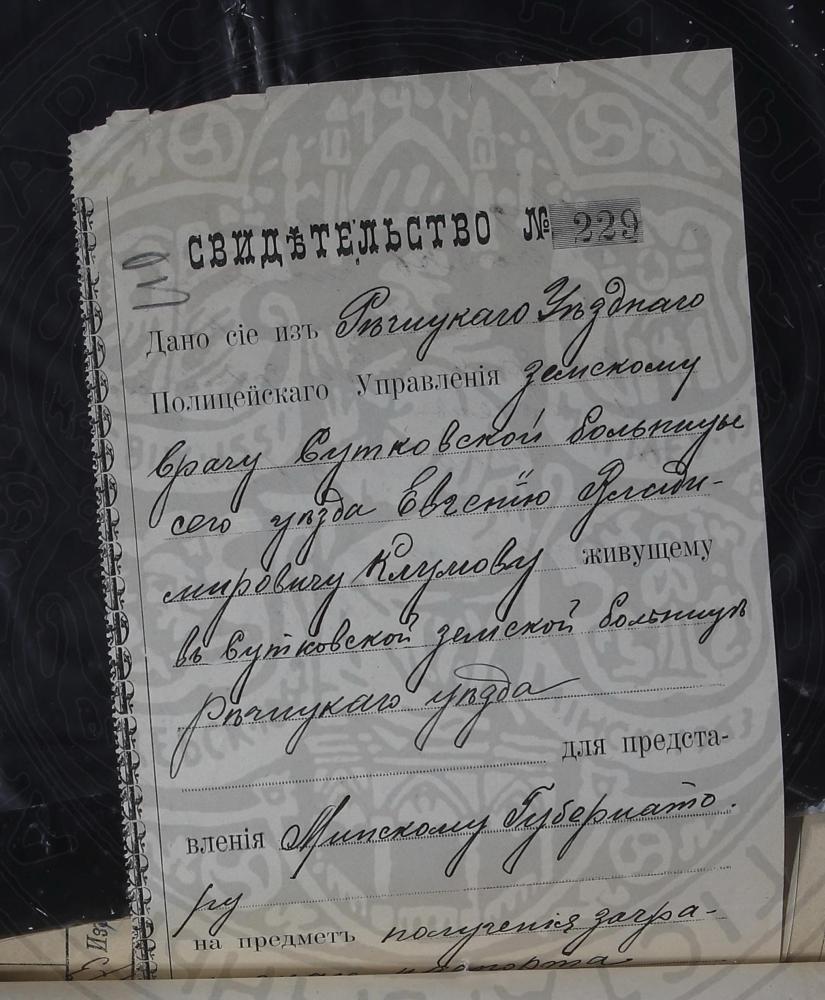 СВИДѢТЕЛЬСТВО № 229
Дано сіе изъ Рѣчицкаго Уѣзднаго
Полицейскаго Управленія земскому
врачу Сутковской больницы
сего уѣзда Евгенію Влади-
мировичу Клумову живущему
въ Сутковской земской больницѣ
Рѣчицкаго уѣзда
для предста-
вленія Минскому Губернато-
ру
на предметъ полученія загра-
паспорта